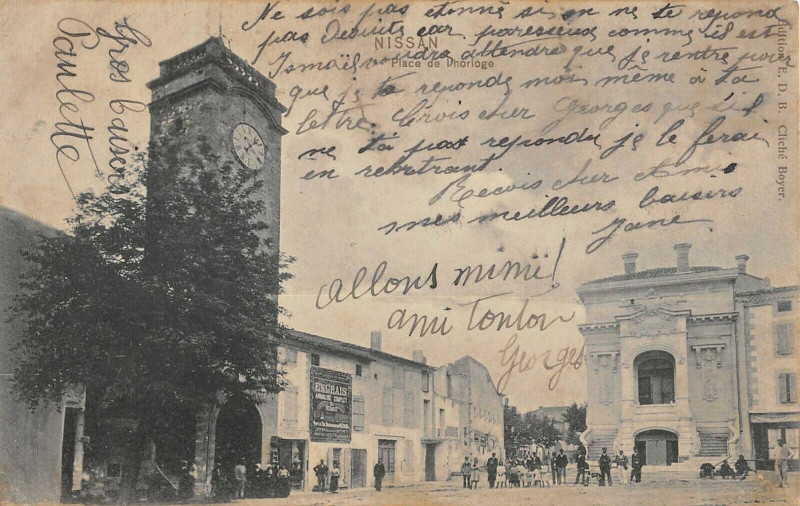 Ne sois pas étonné si on ne te répond
pas de suite car paresseux comme il est
NISSAN
Place de l'horloge
Ismaël voudra attendre que je rentre pour
que je te réponde moi même à ta
lettre. Crois cher Georges que s'il
ne t'a pas répondu je le ferai
en rentrant.
Reçois cher Ami
mes meilleurs baisers
Jane
allons mimi!
ami Tonton
Georges
Gros baisers
Paulette
Edition E. D. B. Cliché Boyer.
ENGRAIS